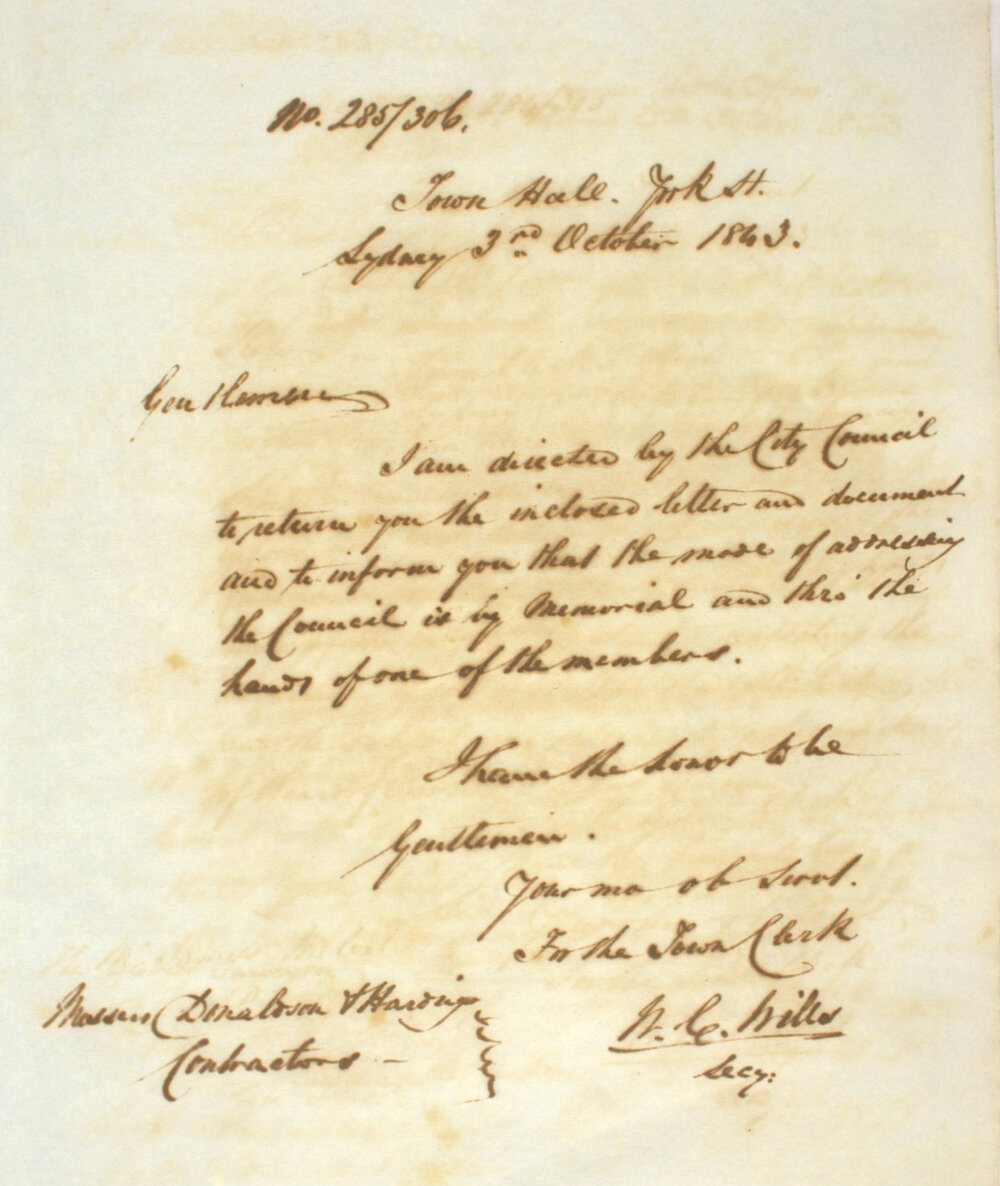 No. 285/306.
Town Hall. York St.
Sydney 3rd October 1843.
Gentlemen
I am directed by the City Council
to return you the inclosed letter and document
and to inform you that the mode of addressing
the Council is by Memorial and thro' the
hands of one of the members.
I have the honor to be
Gentlemen.
Your mo ob Servt.
For the Town Clerk
W. C. Wills
Secy:
Messrs Donaldson & Harding
Contractors -